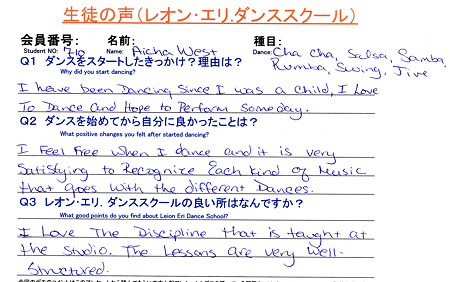 生徒の声(レオン・エリ.ダンススクール)
会員番号: 名前: 種目:
Student NO: 710 Name: Aicha West Dance: Cha cha, Salsa, Samba,
Rumba, Swing, Jive
Q1 ダンスをスタートしたきっかけ?理由は?
Why did you start dancing?
I have been Dancing Since I was a child, I Love
To Dance and Hope to Perform Someday.
Q2 ダンスを始めてから自分に良かったことは?
What positive changes you felt after started dancing?
I Feel Free When I dance and it is very
Satisfying to Recognize Each kind of Music
that goes With the different Dances.
Q3 レオン・エリ.ダンススクールの良い所はなんですか?
What good points do you find about Leion Eri Dance School?
I Love The Discipline that is taught at
the Studio. The Lessons are very Well-
Structured.